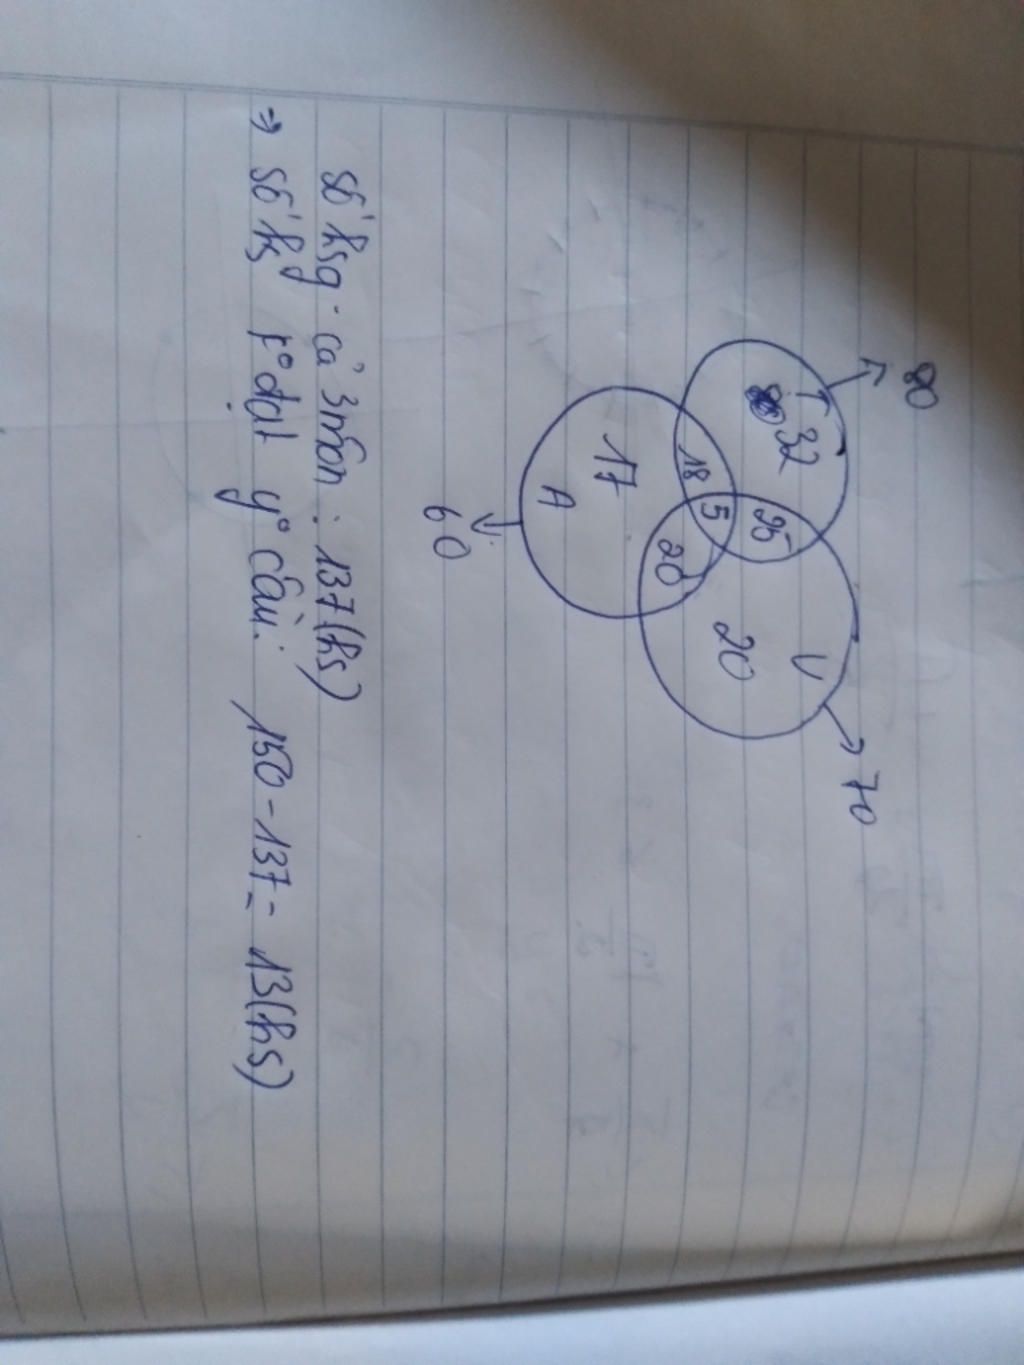 80
70
T
32
25
V
20
18
5
20
17
A
60
số hsg cả 3 môn : 137 (hs)
⇒ số hs k° đạt y° cầu: 150 - 137 = 13 (hs)